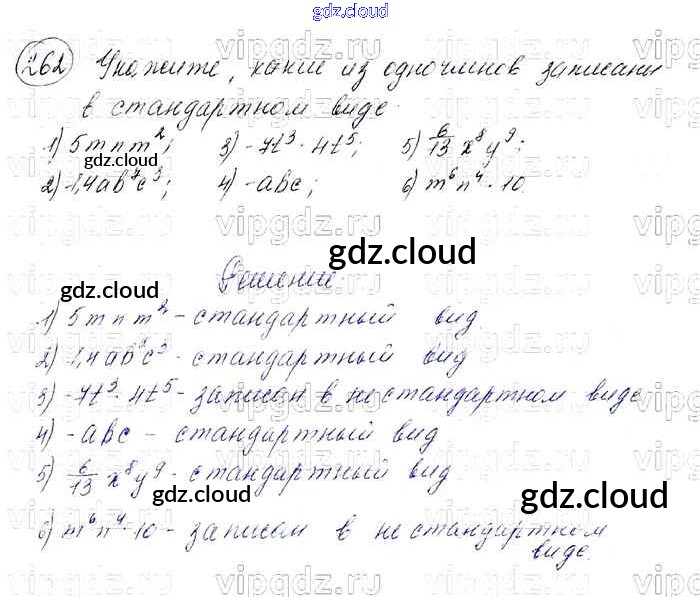 gdz.cloud
262 Укажите, какие из одночленов записаны
в стандартном виде.
1) 5mnm²; 3) -7t³·4t⁵; 5) 6/13 x⁸y⁹;
gdz.cloud
2) -1,4ab⁷c³; 4) -abc; 6) m⁶n⁴·10.
gdz.cloud
Решение.
gdz.cloud
1) 5mnm² - стандартный вид.
2) -1,4ab⁷c³ - стандартный вид
3) -7t³·4t⁵ - записан в нестандартном виде
4) -abc - стандартный вид
5) 6/13 x⁸y⁹ - стандартный вид
gdz.cloud
gdz.cloud
6) m⁶n⁴·10 - записан в нестандартном
виде.
vipgdz.ru